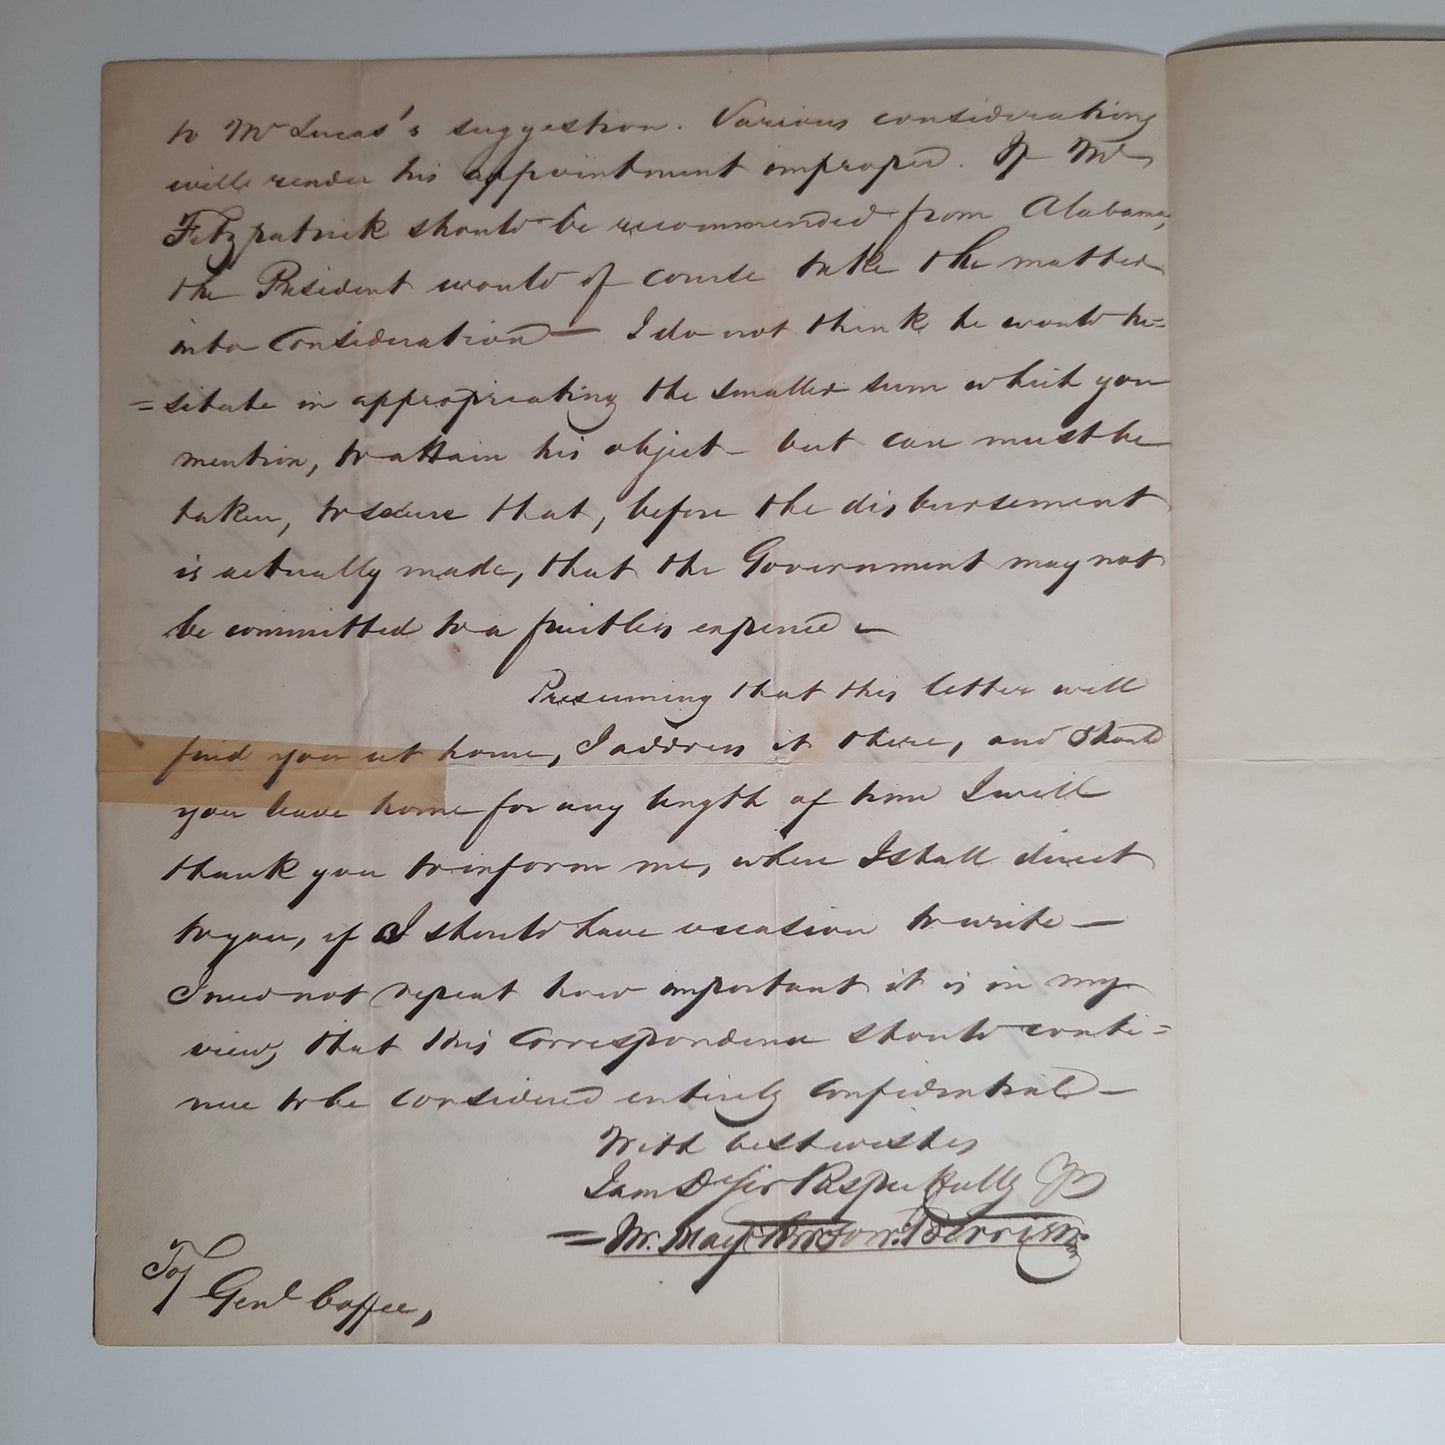 to Mr Lucas's suggestion. Various considerations
will render his appointment improper. If Mr
Fitzpatrick should be recommended from Alabama,
the President would of course take the matter
into Consideration — I do not think he would he=
=sitate in appropriating the smaller sum which you
mention, to attain his object — but care must be
taken, to secure that, before the disbursement
is actually made, that the Government may not
be committed to a fruitless expence —
Presuming that this letter will
find you at home, I address it there, and should
you leave home for any length of time I will
thank you to inform me, where I shall direct
to you, if I should have occasion to write —
I need not repeat how important it is in my
view, that this Correspondence should conti=
nue to be considered entirely Confidential —
With best wishes
I am Dr Sir Respectfully Yrs
Berrien
To
Genl Coffee,